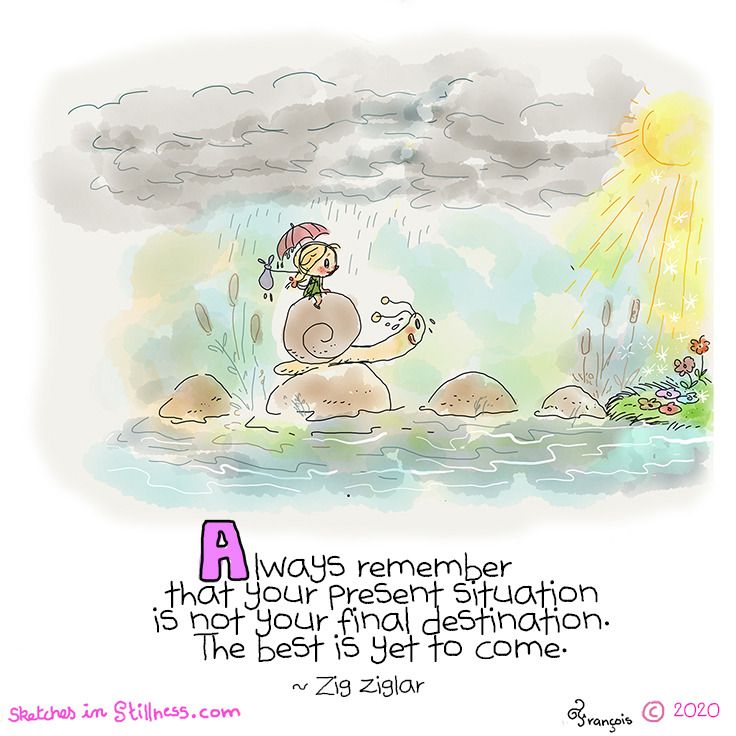 Always remember
that your present situation
is not your final destination.
The best is yet to come.
~ Zig Ziglar
Sketches in Stillness.com
François © 2020